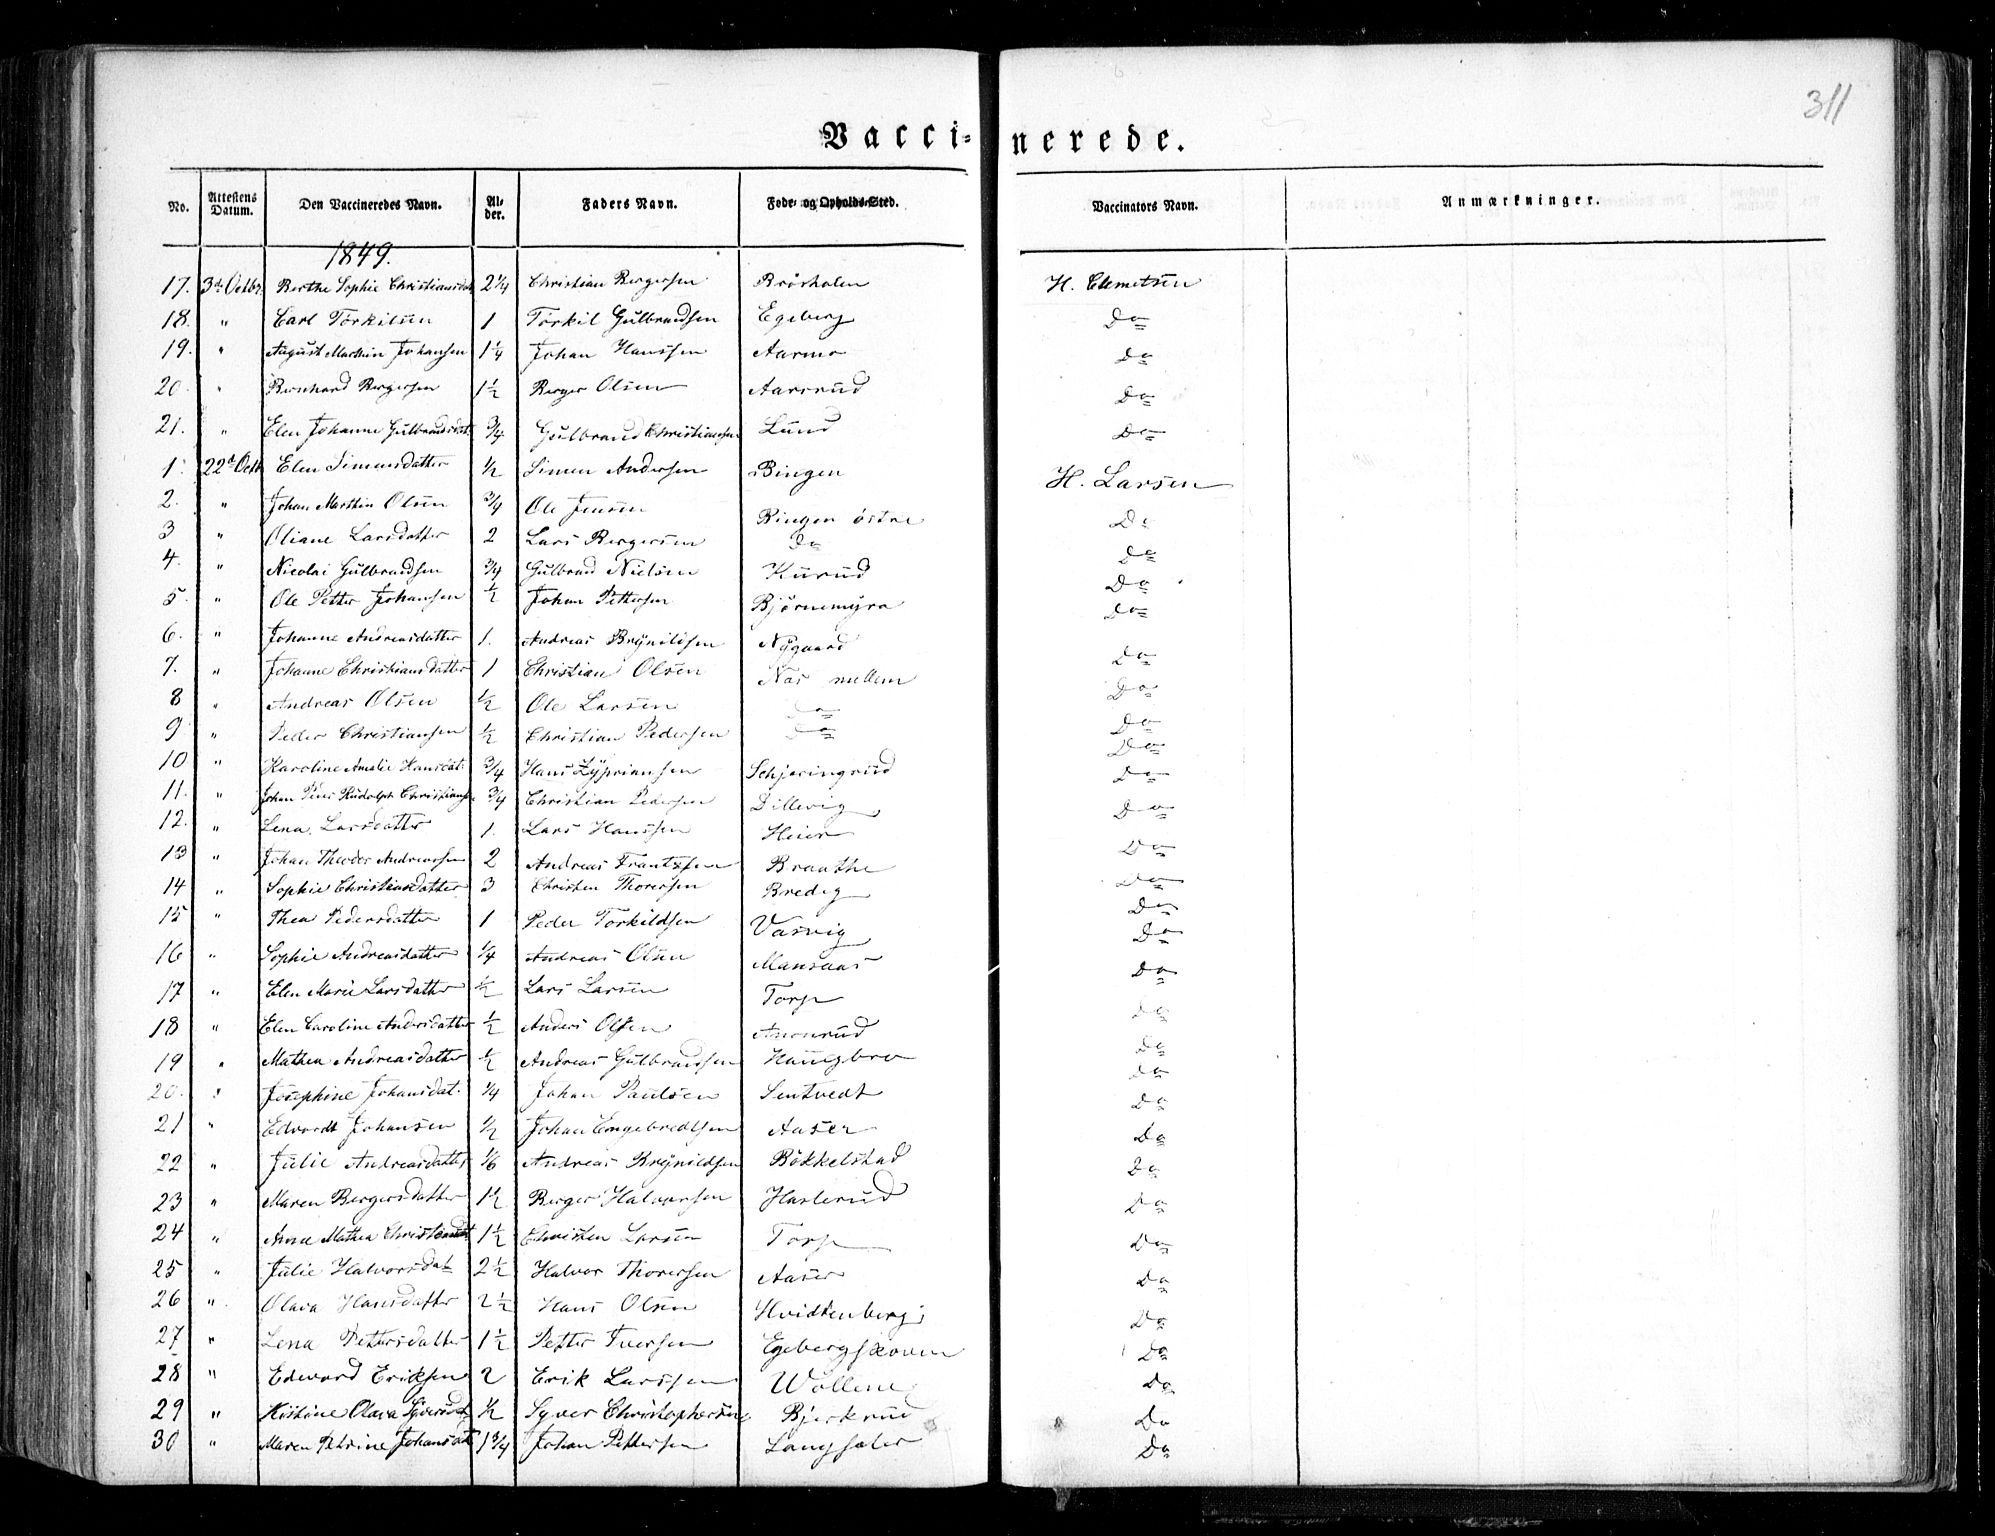 311
Vacci- nerede.
No. Attestens Datum. Den Vaccineredes Navn. Al-der. Faders Navn. Føde- og Opholds-Sted. Vaccinators Navn. Anmærkninger.
1849.
17. 3d Octbr. Berthe Sophie Christiansdat 2 1/4 Christian Bergersen Brösholen H. Clemetsen
18. " Carl Torkilsen 1 Torkil Gulbrandsen Egeberg Do
19. " August Marthin Johansen 1 1/4 Johan Hanssen Aarmo Do
20. " Bernhard Bergersen 1 1/2 Berger Olsen Aarsrud Do
21. " Elen Johanne Gulbrandsdat. 3/4 Gulbrand Christiansen Lund Do
1. 22d Octb Elen Simensdatter 1/2 Simen Andersen Bingen H. Larsen
2. " Johan Marthin Olsen 3/4 Ole Jensen Bingen östre Do
3 " Oliane Larsdatter 2 Lars Bergersen Do Do
4. " Nicolai Gulbrandsen 3/4 Gulbrand Nielsen Kurud Do
5. " Ole Petter Johansen 1/2 Johan Pettersen Bjørnemyra Do
6. " Johanne Andreasdatter 1. Andreas Brynildsen Nygaard Do
7. " Johanne Christiansdatter 1 Christian Olsen Næs mellem Do
8 " Andreas Olsen 1/2 Ole Larsen Do Do
9 " Peder Christiansen 1/2 Christian Pedersen Do Do
10 " Karoline Amalie Hansdat. 3/4 Hans Zypriansen Schjæringrud Do
11. " Johan Rudolph Christiansen 3/4 Christian Pedersen Dillevig Do
12. " Lena Larsdatter 1. Lars Hanssen Heier Do
13 " Johan Theodor Andreassen 2 Andreas Frantzsen Braathe Do
14 " Sophie Christiansdatter 3 Christen Thorersen Bredeg Do
15 " Thea Pedersdatter 1 Peder Torkildsen Varvig Do
16 " Sophie Andreasdatter 1/4 Andreas Olsen Mansaas Do
17 " Elen Marie Larsdatter 1/2 Lars Larsen Torp Do
18 " Elen Caroline Andersdatter 1/2 Anders Olsen Do
19 " Mathea Andreasdatter 1/2 Andreas Gulbrandsen Haugbro Do
20. " Josephine Johansdat. 1/4 Johan Paulsen Sentvedt Do
21 " Edvardt Johansen 1/2 Johan Engebredtsen Aaser Do
22 " Julie Andreasdatter 1/6 Andreas Brynildsen Bökkelstad Do
23 " Maren Bergersdatter 1 1/2 Berger Halvorsen Haslerud Do
24 " Anne Mathea Christensdat 1 1/2 Christen Larsen Torp Do
25 " Julie Halvorsdat 2 1/2 Halvor Thorersen Aaser Do
26 " Olava Hansdatter 2 1/2 Hans Olsen Hvidtenberg Do
27 " Lena Pettersdatter 1 1/2 Petter Iversen Egebergskoven Do
28 " Edevard Eriksen 2 Erik Larssen Wollene Do
29 " Kistine Olava Syversdat 1/2 Syver Christophersen Bjerkrud Do
30 " Maren Petrine Johansdat 1 3/4 Johan Pettersen Langsæter Do